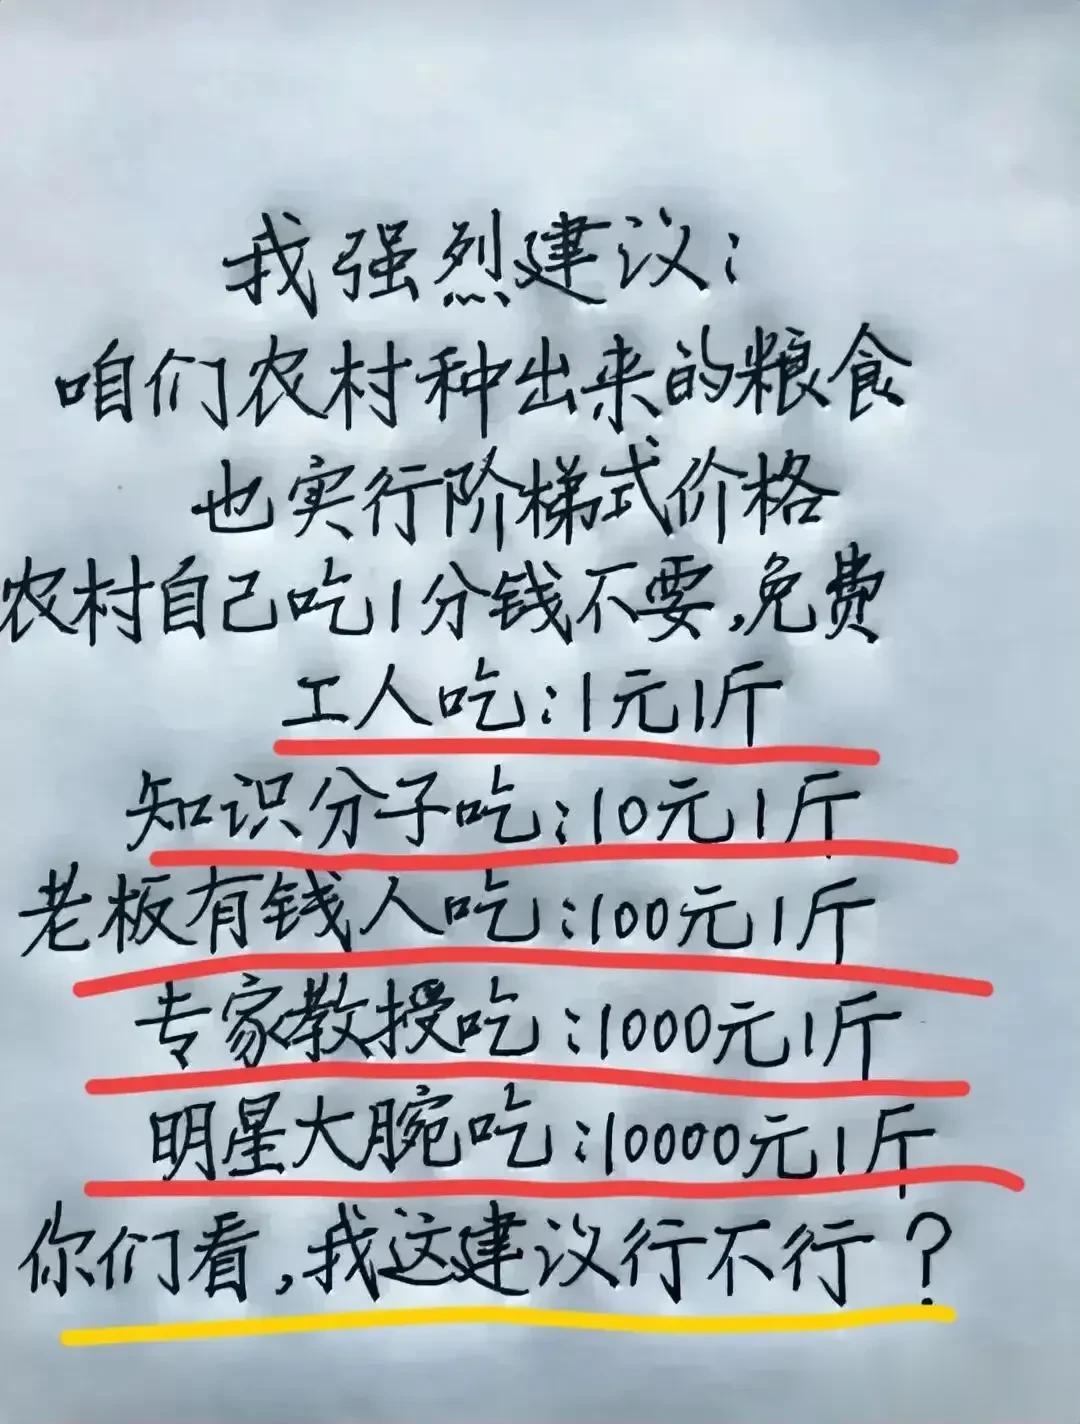 我强烈建议：
咱们农村种出来的粮食
也实行阶梯式价格
农村自己吃1分钱不要，免费
工人吃：1元1斤
知识分子吃：10元1斤
老板有钱人吃：100元1斤
专家教授吃：1000元1斤
明星大腕吃：10000元1斤
你们看，我这建议行不行？